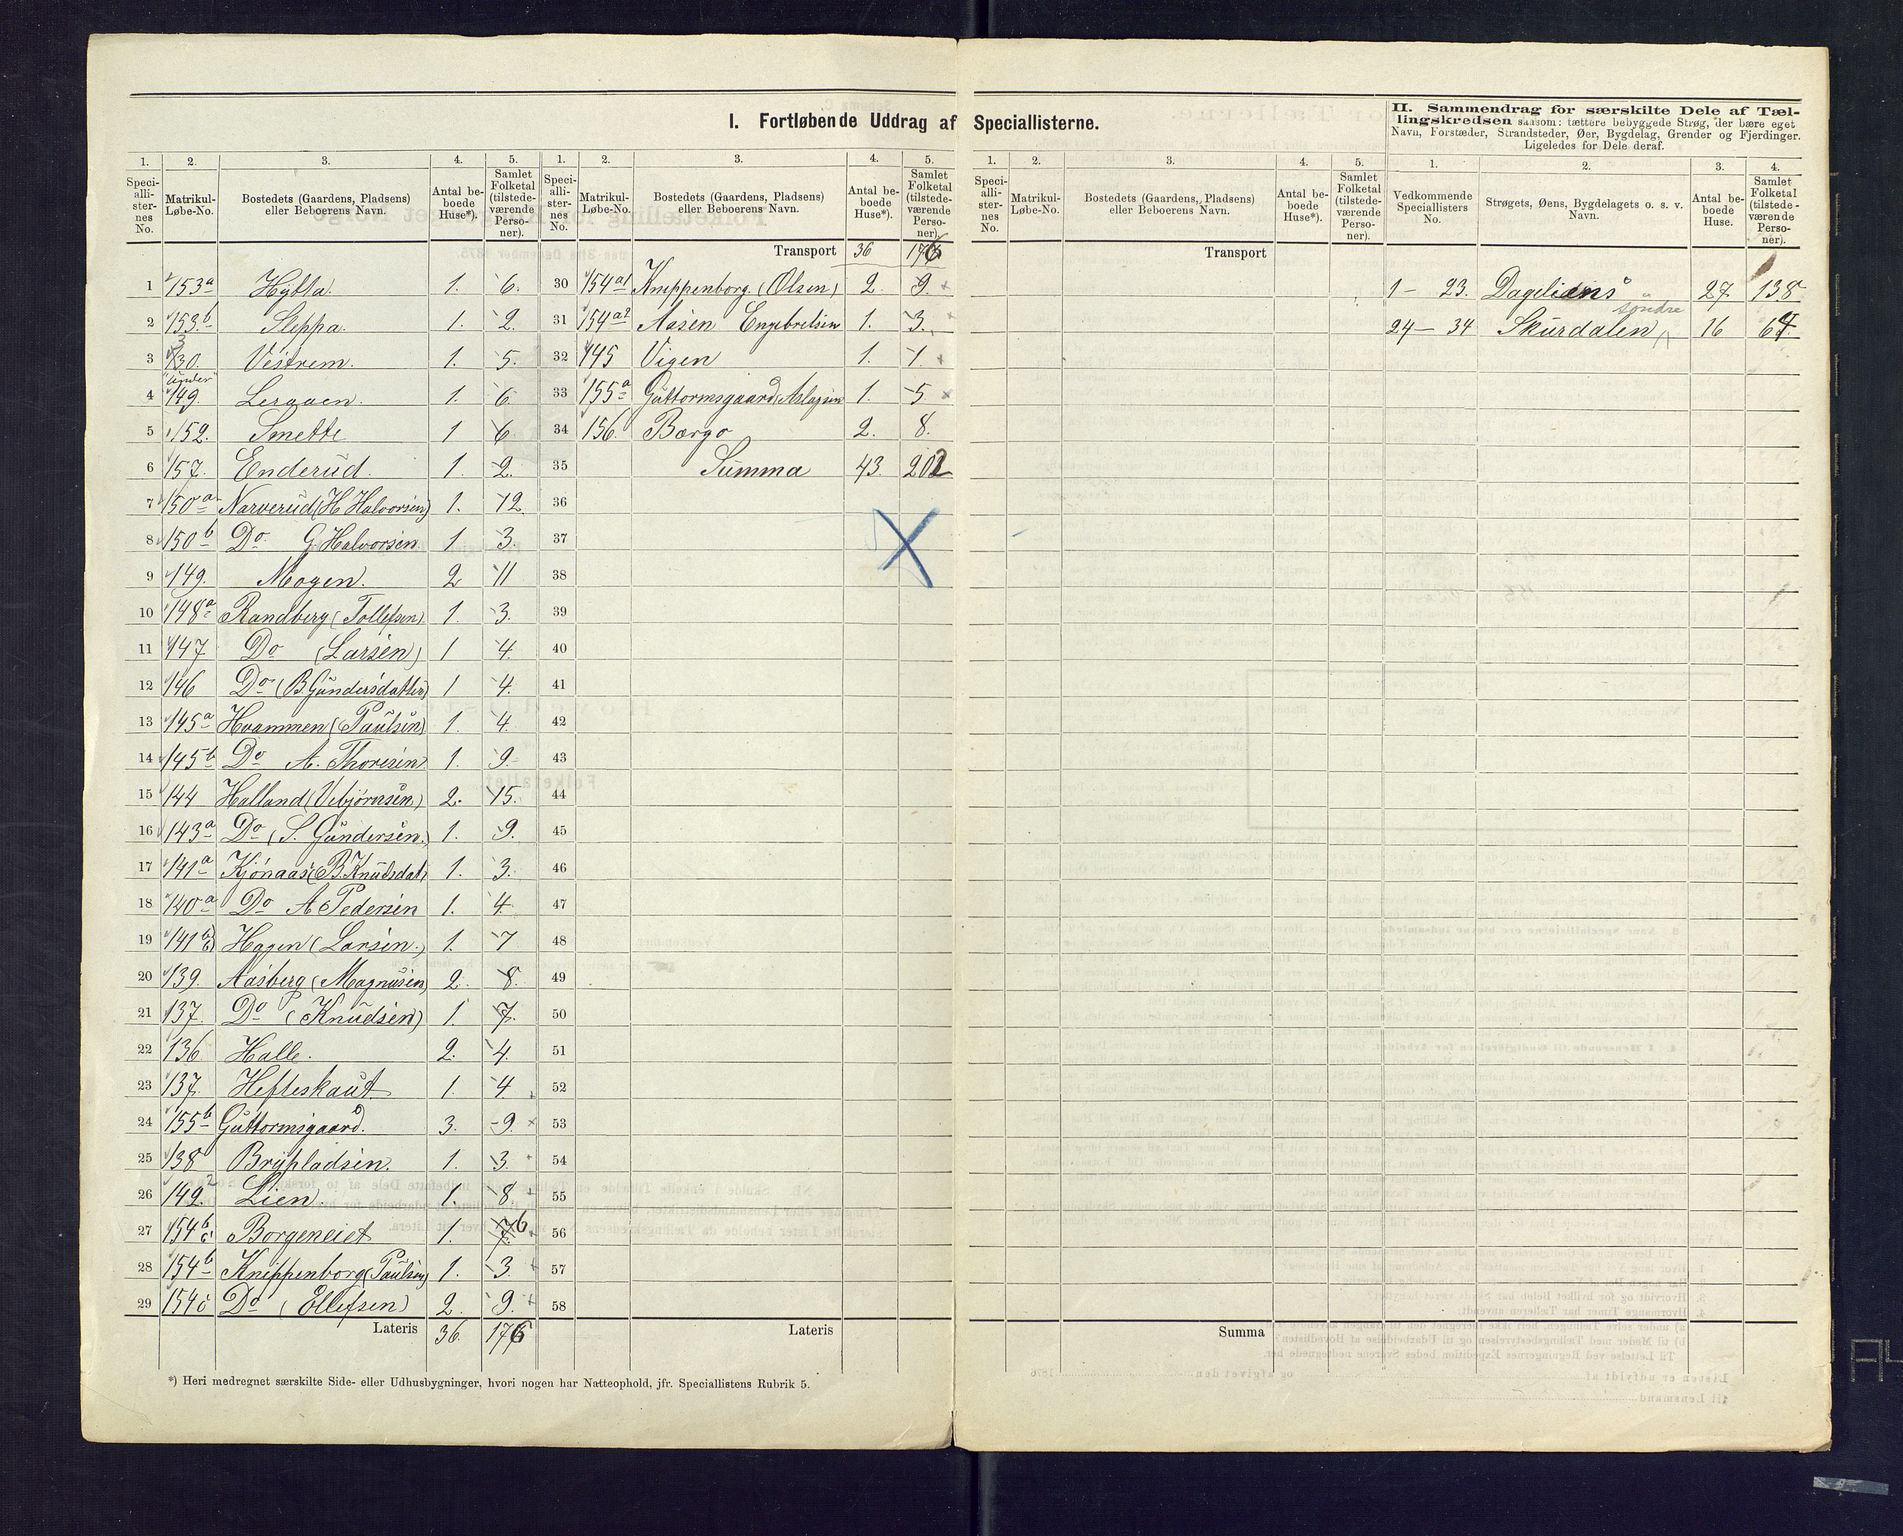 I. Fortløbende Uddrag af Speciallisterne.
II. Sammendrag for særskilte Dele af Tællingskredsen saasom: tættere bebyggede Strøg, der bære eget
Navn, Forstæder, Strandsteder, Øer, Bygdelag, Grender og Fjerdinger.
Ligeledes for Dele deraf.
1. 2. 3. 4. 5. 1. 2. 3. 4. 5. 1. 2. 3. 4. 5. 1. 2. 3. 4.
Speciallisternes No. Matrikul-Løbe-No. Bostedets (Gaardens, Pladsens) eller Beboerens Navn. Antal beboede Huse*). Samlet Folketal (tilstedeværende Personer).
Speciallisternes No. Matrikul-Løbe-No. Bostedets (Gaardens, Pladsens) eller Beboerens Navn. Antal beboede Huse*). Samlet Folketal (tilstedeværende Personer).
Speciallisternes No. Matrikul-Løbe-No. Bostedets (Gaardens, Pladsens) eller Beboerens Navn. Antal beboede Huse*). Samlet Folketal (tilstedeværende Personer).
Vedkommende Speciallisters No. Strøgets, Øens, Bygdelagets o. s. v. Navn. Antal beboede Huse. Samlet Folketal (tilstedeværende Personer).
1 153a Hytta. 1. 6.
2 153b Sleppa. 1. 2.
3 130. Vestrem. 1. 5.
4 "under" 149. Leraaen. 1. 6
5 152. Smette 1 6.
6 157. Enderud. 1. 2.
7 150a Narverud (H Halvorsen) 1. 12.
8 150b Do G. Halvorsen. 1 3.
9 149. Mogen. 2 11
10 148a Randberg (Tollefsen) 1. 3.
11 147 Do (Larsen) 1 4.
12 146 Do (B. Gundersdatter) 1 4.
13 145a Hvammen (Paulsen) 1. 4.
14 145b Do A. Thoresen 1. 9.
15 144 Halland (Vebjørnsen) 2. 15.
16 143a Do (S. Gundersen.) 1. 9.
17 141a Kjønaas (B. Knudsdat) 1. 3.
18 140a Do A Pedersen 1. 4.
19 141b Hagen (Larsen.) 1. 7
20 139. Aasberg (Magnusen) 2. 8.
21 137. Do (Knudsen) 1. 7.
22 136 Halle. 2. 4.
23 137. Hefteskaut 1. 4
24 155b Guttormsgaard. 3. 9.
25 138 Brypladsen. 1. 3.
26 149.2 Lien. 1. 8
27 154b Borgeneiet 1. 6
28 154b Knippenborg (Paulsen) 1. 3.
29 154c Do (Ellefsen) 2. 9.
Lateris 36. 176
Transport 36 176
30 154a1 Knippenborg (Olsen) 2. 9.
31 154a2 Aasen Engebretsen 1. 3.
32 145 Vigen 1. 1.
33 155a Guttormsgaard (Aslagsen 1. 5.
34 156. Børgo 2. 8.
35 Summa 43. 202
36
37
38
39
40
41
42
43
44
45
46
47
48
49
50
51
52
53
54
55
56
57
58
Lateris
Transport
Summa
1 — 23. Dageliens 27. 138
søndre
24 — 34 Skurdalen 16 64
*) Heri medregnet særskilte Side- eller Udhusbygninger, hvori nogen har Natteophold, jfr. Speciallistens Rubrik 5.